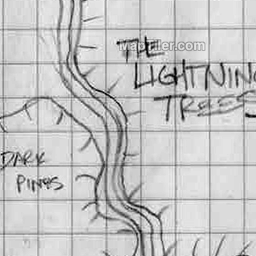 MapTiler.com
THE
LIGHTNING
TREES
DARK
PINES